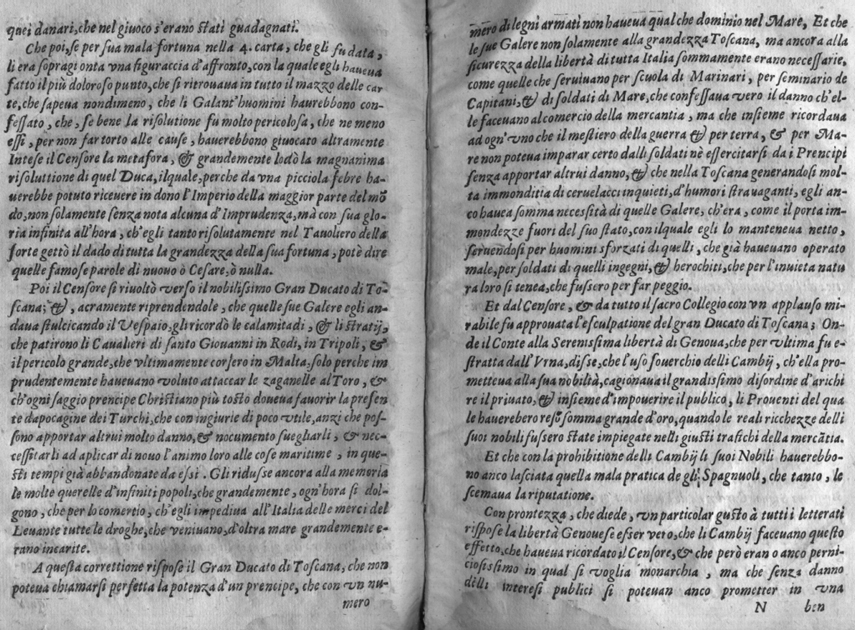 quei danari, che nel giuoco s'erano stati guadagnati.
Che poi, se per sua mala fortuna nella 4. carta, che gli fu data,
li era sopragionta vna figuraccia d'affronto, con la quale egli haueua
fatto il più doloroso punto, che si ritrouaua in tutto il mazzo delle car
te, che sapeua nondimeno, che li Galant'huomini haurebbono con-
fessato, che, se bene la risolutione fu molto pericolosa, che ne meno
essi, per non far torto alle cause, hauerebbono giuocato altramente
Intese il Censore la metafora, & grandemente lodò la magnanima
risoluttione di quel Duca, ilquale, perche da vna picciola febre ha-
uerebbe potuto riceuere in dono l'Imperio della maggior parte del mō
do, non solamente senza nota alcuna d'Imprudenza, mà con sua glo-
ria infinita all'hora, ch'egli tanto risolutamente nel Tauolzero della
sorte gettò il dado di tutta la grandezza della sua fortuna, potè dire
quelle famose parole di nuouo ò Cesare, ò nulla.
Poi il Censore si riuoltò verso il nobilissimo Gran Ducato di To-
scana; &, acramente riprendendole, che quelle sue Galere egli an-
daua stulcicando il Vespaio, gli ricordò le calamitadi, & li stratij,
che patirono li Caualieri di santo Giouanni in Rodi, in Tripoli, &
il pericolo grande, che vltimamente corsero in Malta, solo perche im
prudentemente haueuano voluto attaccar le zaganelle al Toro, &
ch'ogni saggio prencipe Christiano più tosto doueua fauorir la presen
te dapocagine dei Turchi, che con ingiurie di poco vtile, anzi che pos-
sono apportar altrui molto danno, & nocumento suegliarli, & nec-
cessitarli ad aplicar di nouo l'animo loro alle cose maritime, in que-
sti tempi già abbandonate da essi. Gli ridusse ancora alla memoria
le molte querelle d'infiniti popoli, che grandemente, ogn'hora si dol-
gono, che per lo comertio, ch'egli impediua all'Italia delle merci del
Leuante tutte le droghe, che veniuano, d'oltra mare grandemente e-
rano incarite.
A questa correttione rispose il Gran Ducato di Toscana, che non
poteua chiamarsi perfetta la potenza d'un prencipe, che con vn nu-
mero
mero di legni armati non haueua qual che dominio nel Mare, Et che
le sue Galere non solamente alla grandezza Toscana, ma ancora alla
sicurezza della libertà di tutta Italia sommamente erano necessarie,
come quelle che seruiuano per scuola di Marinari, per seminario de
Capitani, & di soldati di Mare, che confessaua vero il danno ch'el-
le faceuano al comercio della mercantia, ma che insieme ricordaua
ad ogn'vno che il mestiero della guerra & per terra, & per Ma-
re non poteua imparar certo dalli soldati nè essercitarsi da i Prencipi
senza apportar altrui danno, & che nella Toscana generandosi mol-
ta immonditia di ceruelacci inquieti, d'humori strauaganti, egli an-
co haueа somma necessità di quelle Galere, ch'era, come il porta im-
mondezze fuori del suo stato, con ilquale egli lo manteneua netto,
seruendosi per huomini sforzati di quelli, che già haueuano operato
male, per soldati di quelli ingegni, & herochiti, che per l'inuieta natu
ra loro si tenea, che fussero per far peggio.
Et dal Censore, & da tutto il sacro Collegio con vn applauso mi-
rabile fu approuata l'esculpatione del gran Ducato di Toscana; On-
de il Conte alla Serenissima libertà di Genoua, che per vltima fu e-
stratta dall'Vrna, disse, che l'uso souerchio delli Cambij, ch'ella pro-
metteua alla sua nobiltà, cagionaua il grandissimo disordine d'arichi
re il priuato, & insieme d'impouerire il publico, li Prouenti del qua
le hauerebero reso somma grande d'oro, quando le reali ricchezze delli
suoi nobili fussero state impiegate nelli giusti trafichi della mercātia.
Et che con la prohibitione delli Cambij li suoi Nobili hauerebbo-
no anco lasciata quella mala pratica de gli Spagnuoli, che tanto, le
scemaua la riputatione.
Con prontezza, che diede, vn particolar gusto à tutti i letterati
rispose la libertà Genouese esser vero, che li Cambij faceuano questo
effetto, che haueua ricordato il Censore, & che però eran o anco perni-
ciosissimo in qual si voglia monarchia, ma che senza danno
delli interesi publici si poteuan anco prometter in vna
N ben